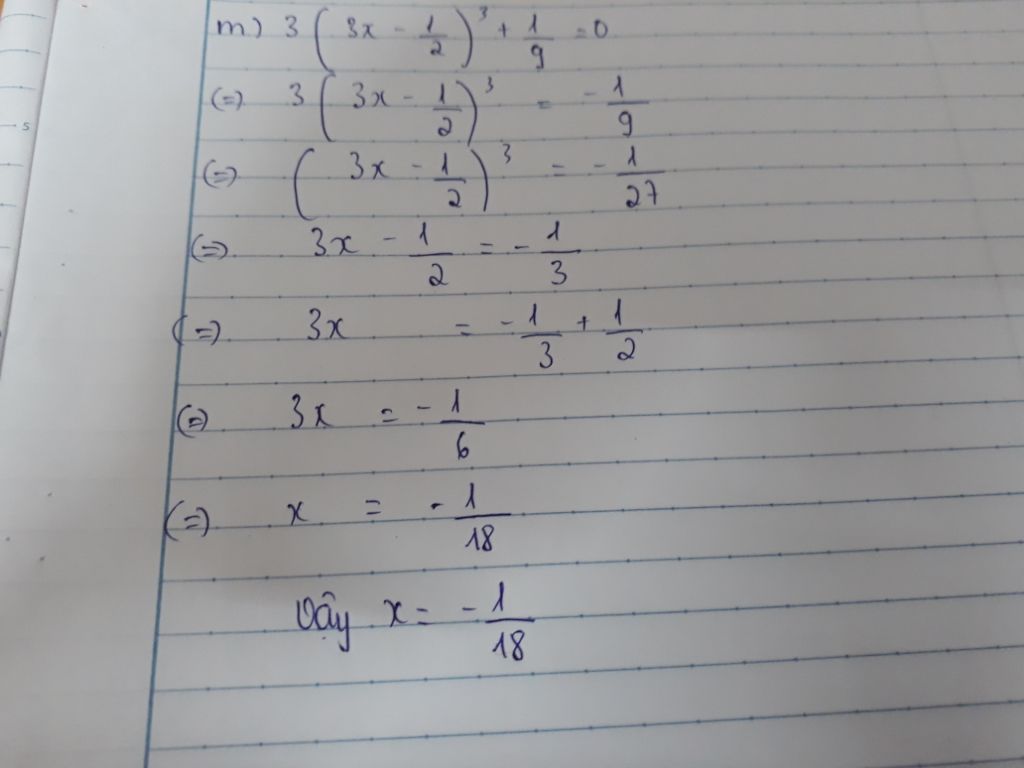 m) 3(3x - 1/2)³ + 1/9 = 0
(=) 3(3x - 1/2)³ = - 1/9
(=) (3x - 1/2)³ = - 1/27
(=) 3x - 1/2 = - 1/3
(=) 3x = - 1/3 + 1/2
(=) 3x = - 1/6
(=) x = - 1/18
Vậy x = - 1/18